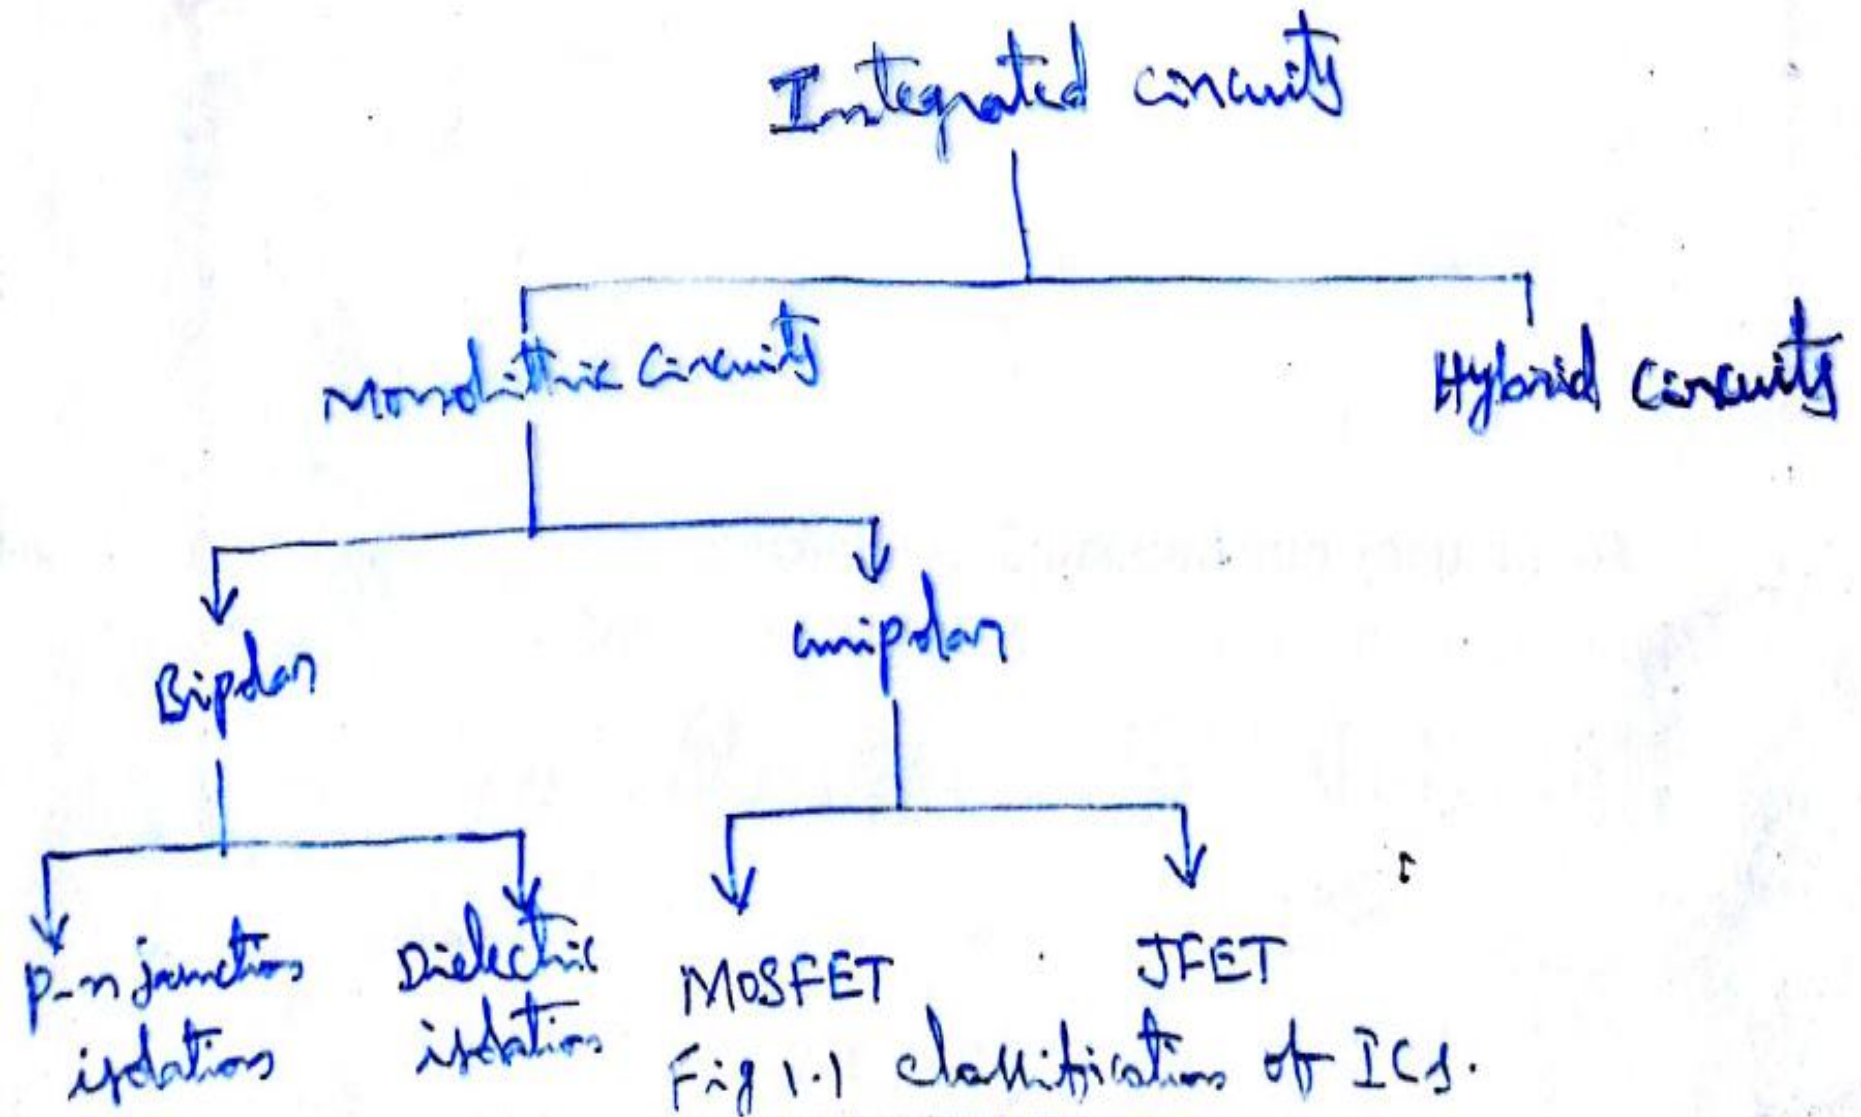 Integrated circuits
Monolithic Circuits
Hybrid circuits
Bipolar
unipolar
p-n junction
isolation
Dielectric
isolation
MOSFET
JFET
Fig 1.1 classification of ICs.